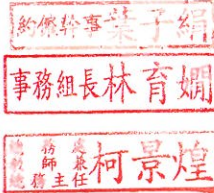 約僱幹事葉子絹
事務組長林育嫺
總務主任柯景煌